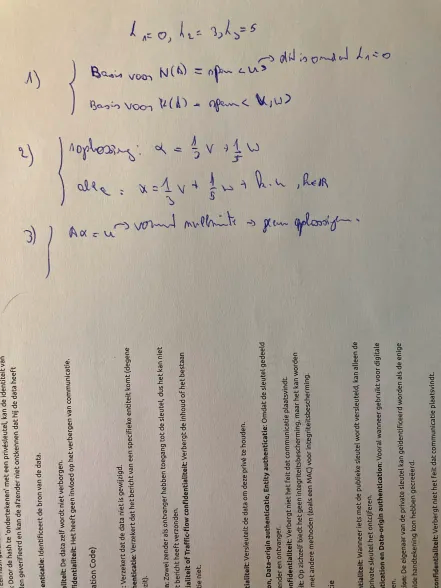 λ₁=0, λ₂= 3, λ₃=5
1)
Basis voor N(A) = span<u> → dit is omdat λ₁=0
Basis voor K(A) = span<v,w>
2)
1 oplossing: x = 1/3 v + 1/5 w
alle: x = 1/3 v + 1/5 w + k.u, k∈ℝ
3)
Ax = u → → geen oplossingen.
Door de hash te 'ondertekenen' met een privésleutel, kan de identiteit van
geverifieerd en kan de afzender niet ontkennen dat hij de data heeft
enticatie: Identificeert de bron van de data.
tialiteit: De data zelf wordt niet verborgen.
fidentialiteit: Het heeft geen invloed op het verbergen van communicatie.
tion Code)
: Verzekert dat de data niet is gewijzigd.
nticatie: Verzekert dat het bericht van een specifieke entiteit komt (degene
tel).
e: Zowel zender als ontvanger hebben toegang tot de sleutel, dus het kan niet
bericht heeft verzonden.
tialiteit of Traffic-flow confidentialiteit: Verbergt de inhoud of het bestaan
e niet.
tialiteit: Versleutelt de data om deze privé te houden.
Data-origin authenticatie, Entity authenticatie: Omdat de sleutel gedeeld
ender en ontvanger.
fidentialiteit: Verbergt niet het feit dat communicatie plaatsvindt.
it: Op zichzelf biedt het geen integriteitsbescherming, maar het kan worden
met andere methoden (zoals een MAC) voor integriteitsbescherming.
ie
tialiteit: Wanneer iets met de publieke sleutel wordt versleuteld, kan alleen de
private sleutel het ontcijferen.
ication en Data-origin authentication: Vooral wanneer gebruikt voor digitale
gen.
ie: De eigenaar van de private sleutel kan geïdentificeerd worden als de enige
de handtekening kon hebben gecreëerd.
fidentialiteit: Verbergt niet het feit dat communicatie plaatsvindt.